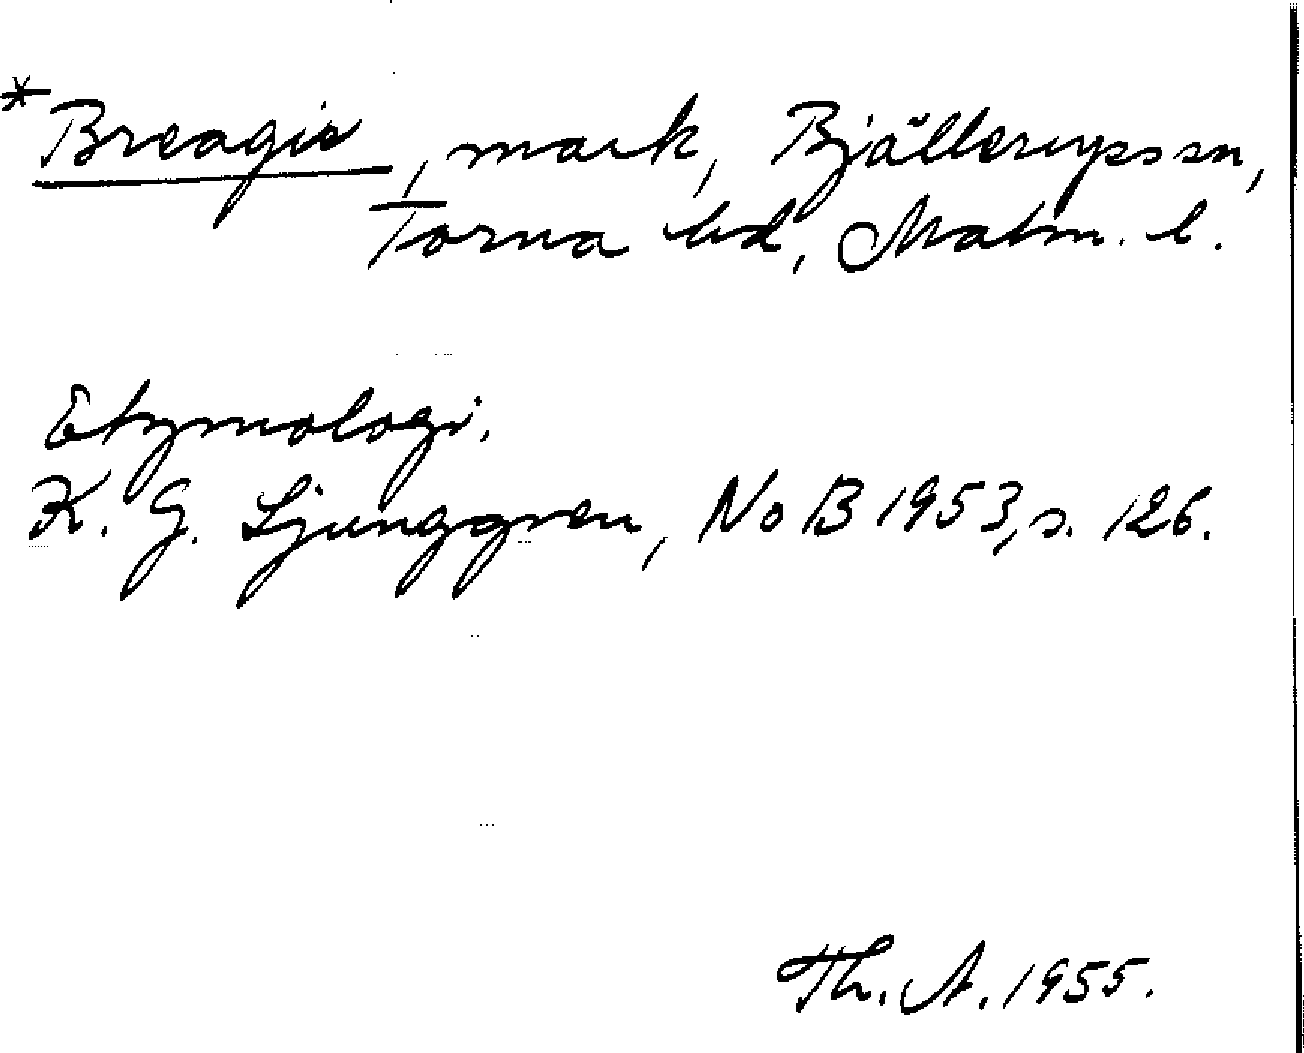 *Breagie, mark, Bjällerupssn,
Torna hd, Malm. l.
Etymologi.
K. G. Ljunggren, NoB 1953, s. 126.
Th. A. 1955.